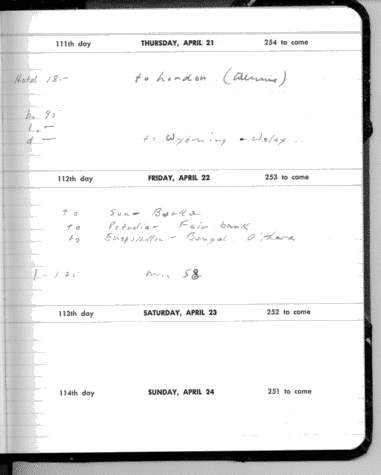 111th day THURSDAY, APRIL 21 254 to come
Hotel 18.- to London (
b. 95
L. —
d — to Wyoming -
112th day FRIDAY, APRIL 22 253 to come
to Sun Banks
to Fairbank
to - Bengal O'Hara
L - 1 25 m. 58
113th day SATURDAY, APRIL 23 252 to come
114th day SUNDAY, APRIL 24 251 to come